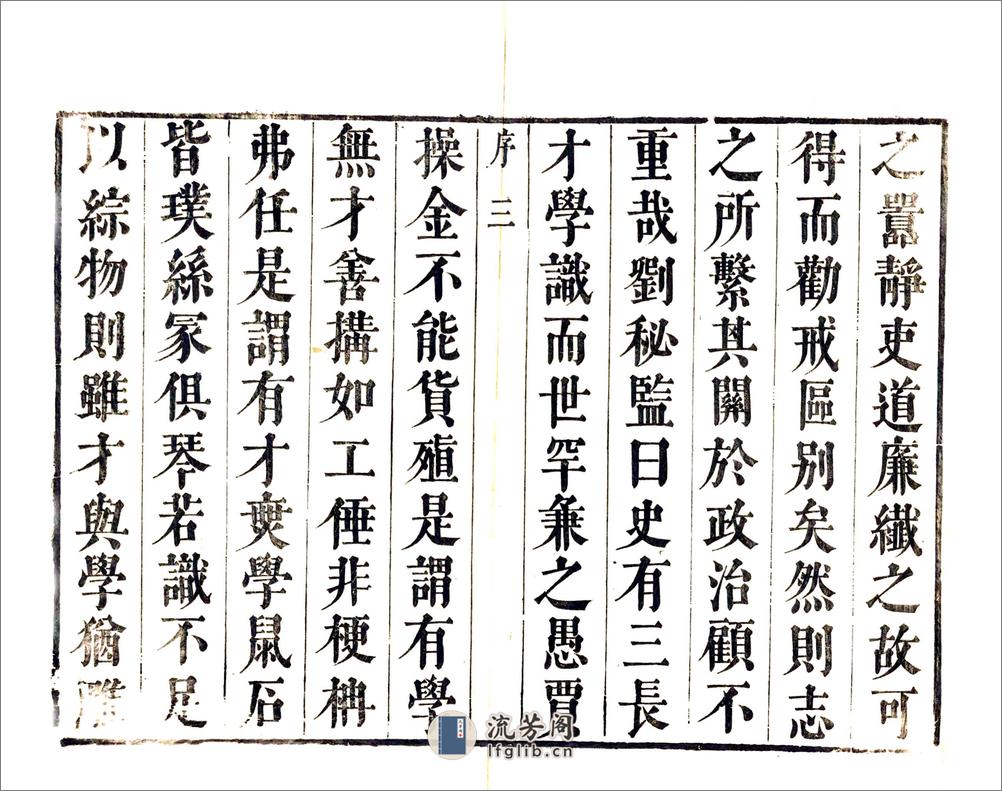 之囂靜吏道廉纎之故可
得而勸戒區別矣然則志
之所繫其關於政治顧不
重哉劉秘監曰史有三長
才學識而世罕兼之愚賈
序 三
操金不能貨殖是謂有學
無才善搆如工倕非梗柟
弗任是謂有才奭學鼠石
皆璞絲冢俱琴若識不足
以綜物則雖才與學猶
流芳阁
lfglib.cn